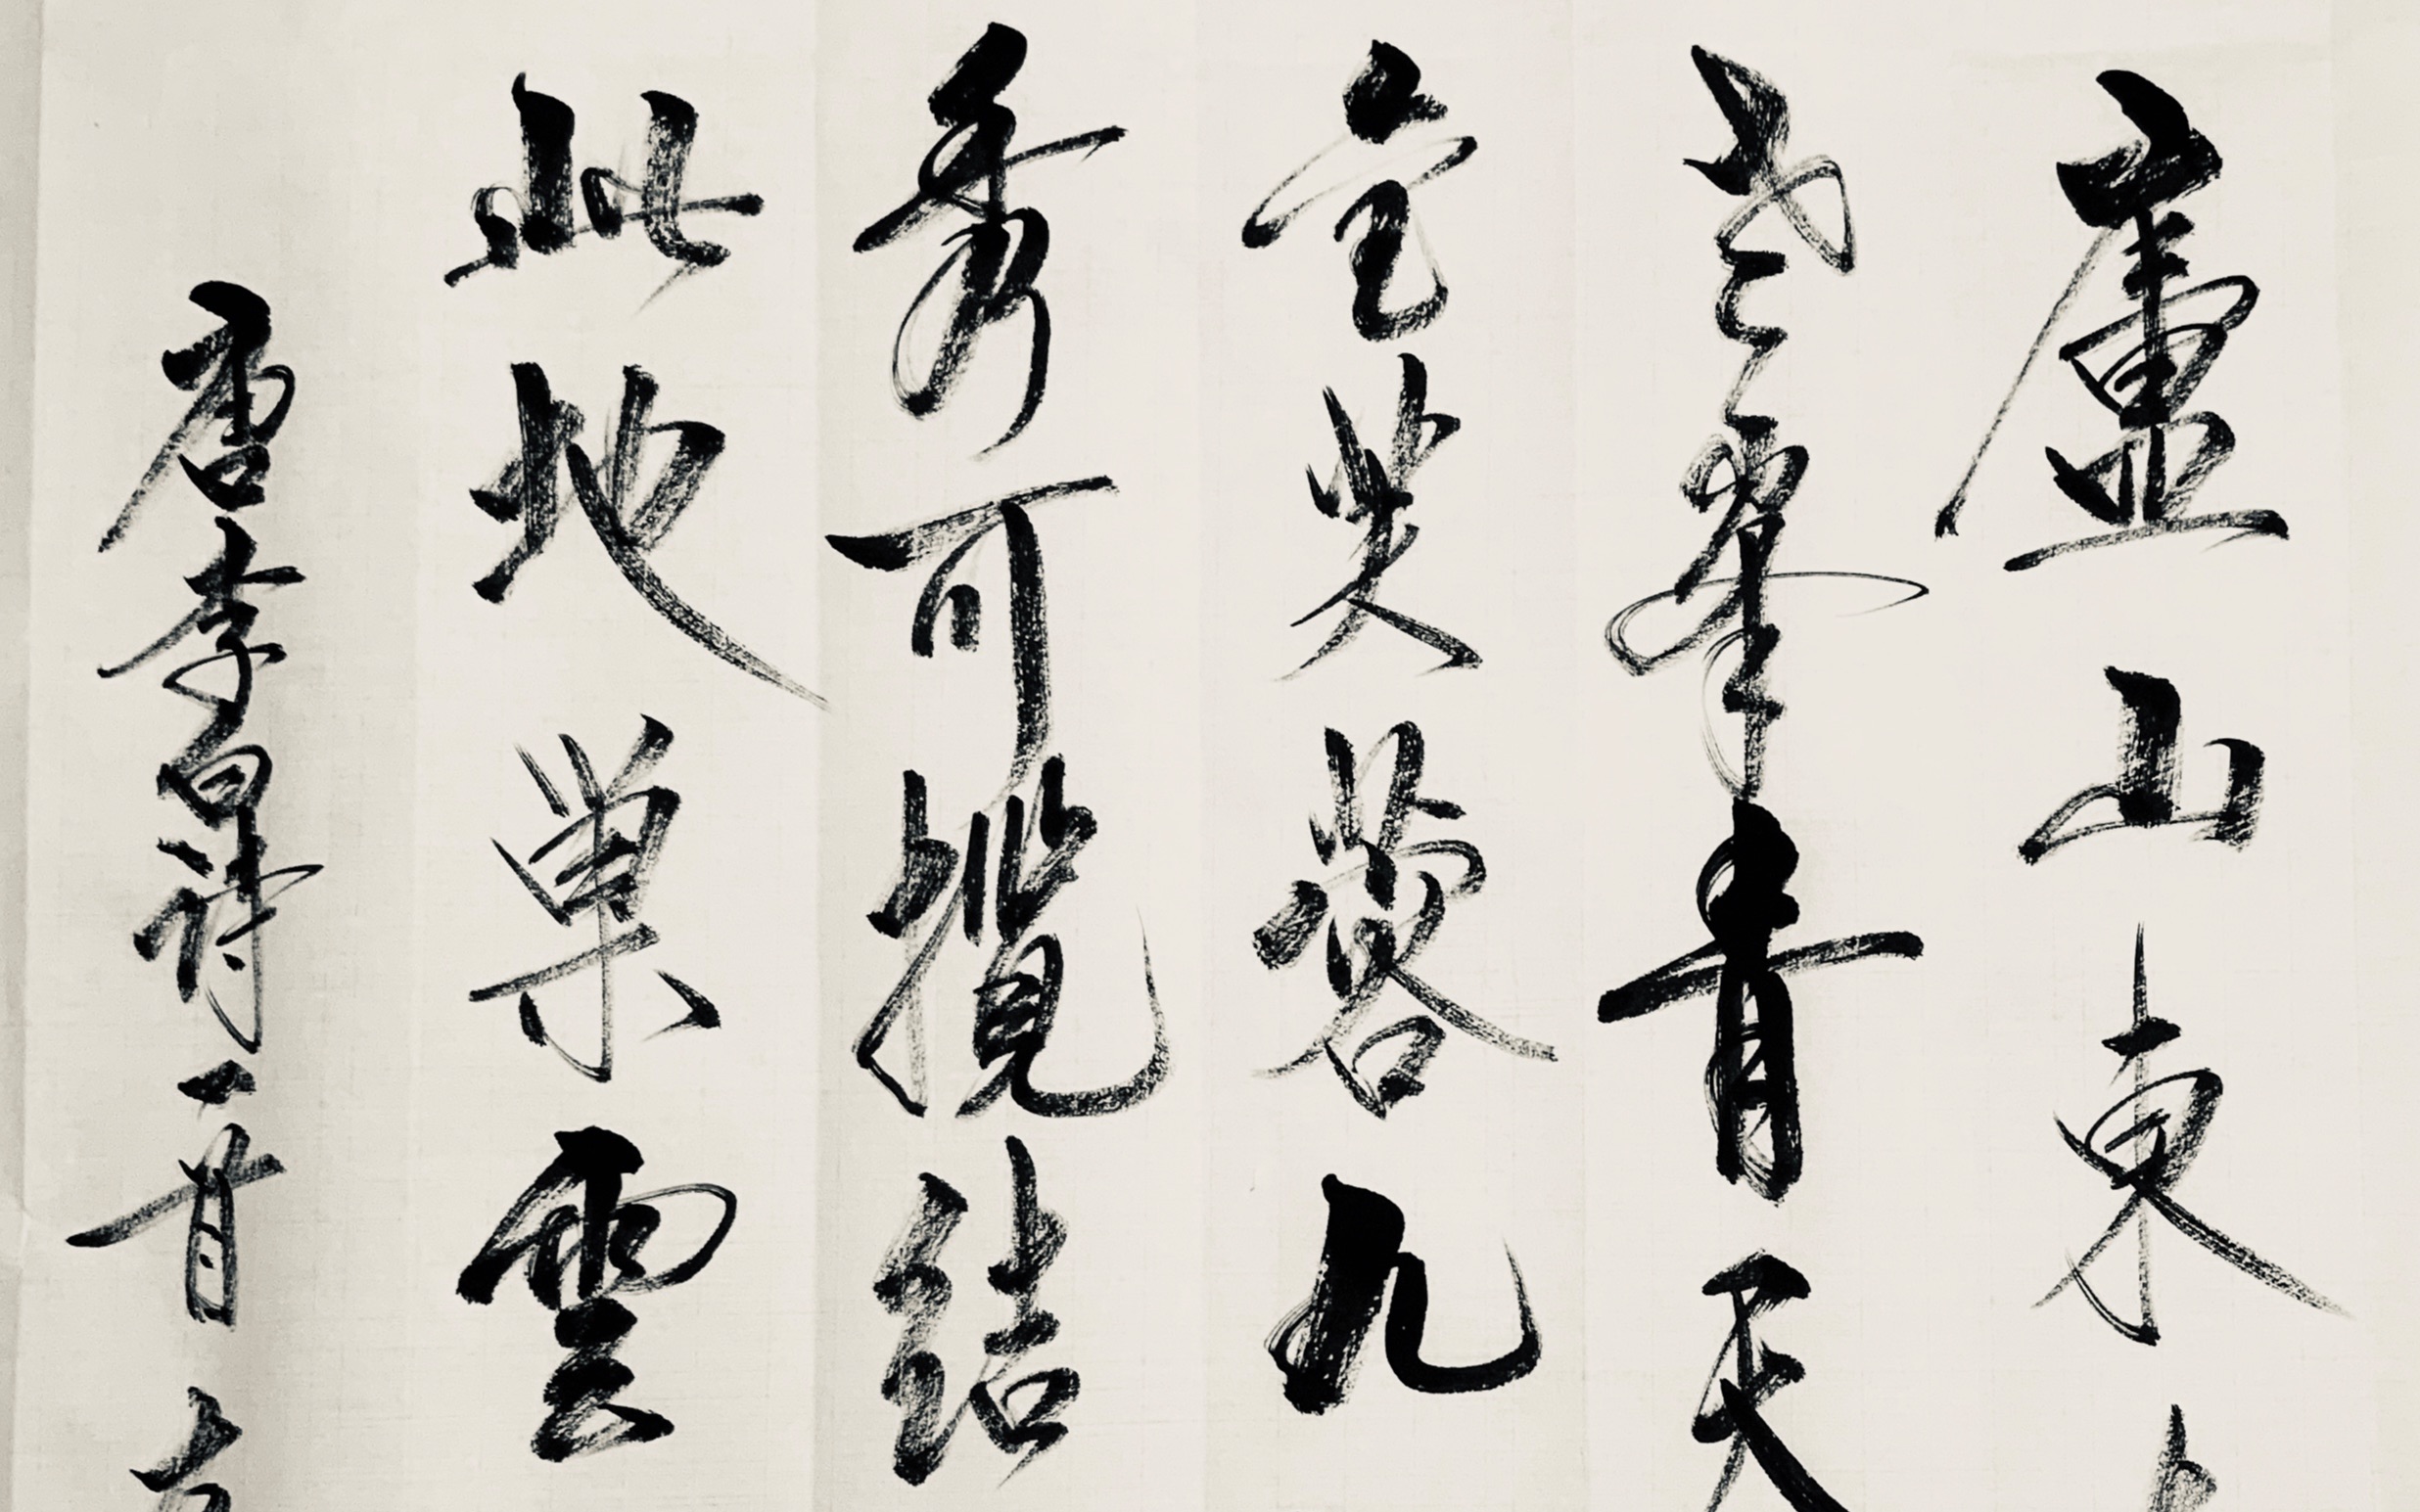 廬山東
老峯青天
金芙蓉九
秀可攬結
此地巢雲
唐李白詩一首